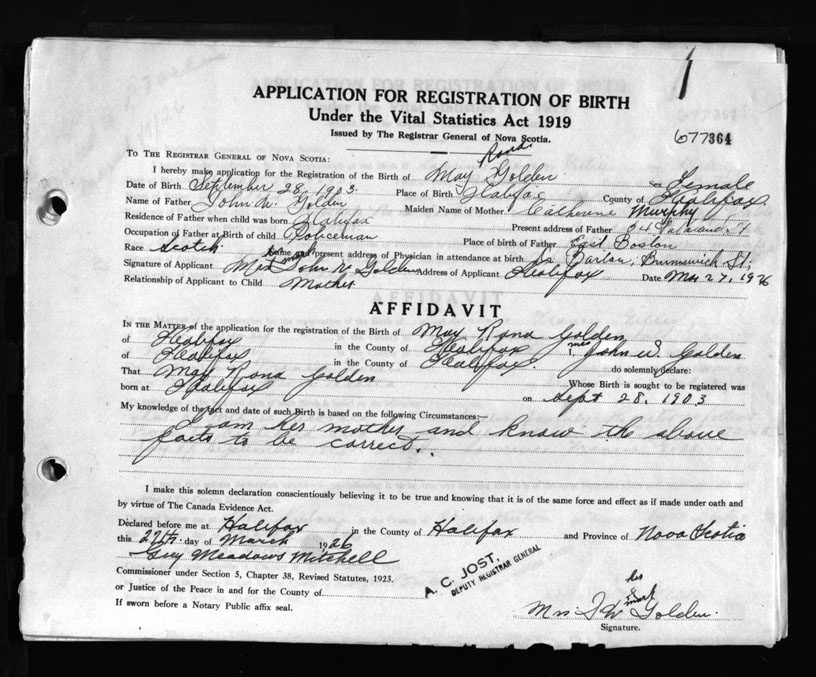 APPLICATION FOR REGISTRATION OF BIRTH
Under the Vital Statistics Act 1919
Issued by The Registrar General of Nova Scotia.
677364
To The Registrar General of Nova Scotia:
Rona
I hereby make application for the Registration of the Birth of May Golden Sex Female
Date of Birth September 28, 1903. Place of Birth Halifax County of Halifax
Name of Father John W. Golden Maiden Name of Mother Catherine Murphy
Residence of Father when child was born Halifax Present address of Father 84
Occupation of Father at Birth of child Policeman Place of birth of Father East Boston
Race Scotch Name and present address of Physician in attendance at birth Brunswick St;
Signature of Applicant Mrs John W Golden Address of Applicant Halifax Date Mar 27, 1926
Relationship of Applicant to Child Mother
AFFIDAVIT
In the Matter of the application for the registration of the Birth of May Rona Golden
of Halifax in the County of Halifax I, Mrs John W. Golden
of Halifax in the County of Halifax. do solemnly declare:
That May Rona Golden Whose Birth is sought to be registered was
born at Halifax on Sept 28, 1903
My knowledge of the fact and date of such Birth is based on the following Circumstances:—
I am her mother and know the above
facts to be correct.
I make this solemn declaration conscientiously believing it to be true and knowing that it is of the same force and effect as if made under oath and
by virtue of The Canada Evidence Act.
Declared before me at Halifax in the County of Halifax and Province of Nova Scotia
this 27th day of March 1926
Guy Meadows Mitchell
Commissioner under Section 5, Chapter 38, Revised Statutes, 1923.
or Justice of the Peace in and for the County of
If sworn before a Notary Public affix seal.
A. C. JOST,
DEPUTY REGISTRAR GENERAL
her
Mrs J W Golden.
mark
Signature.